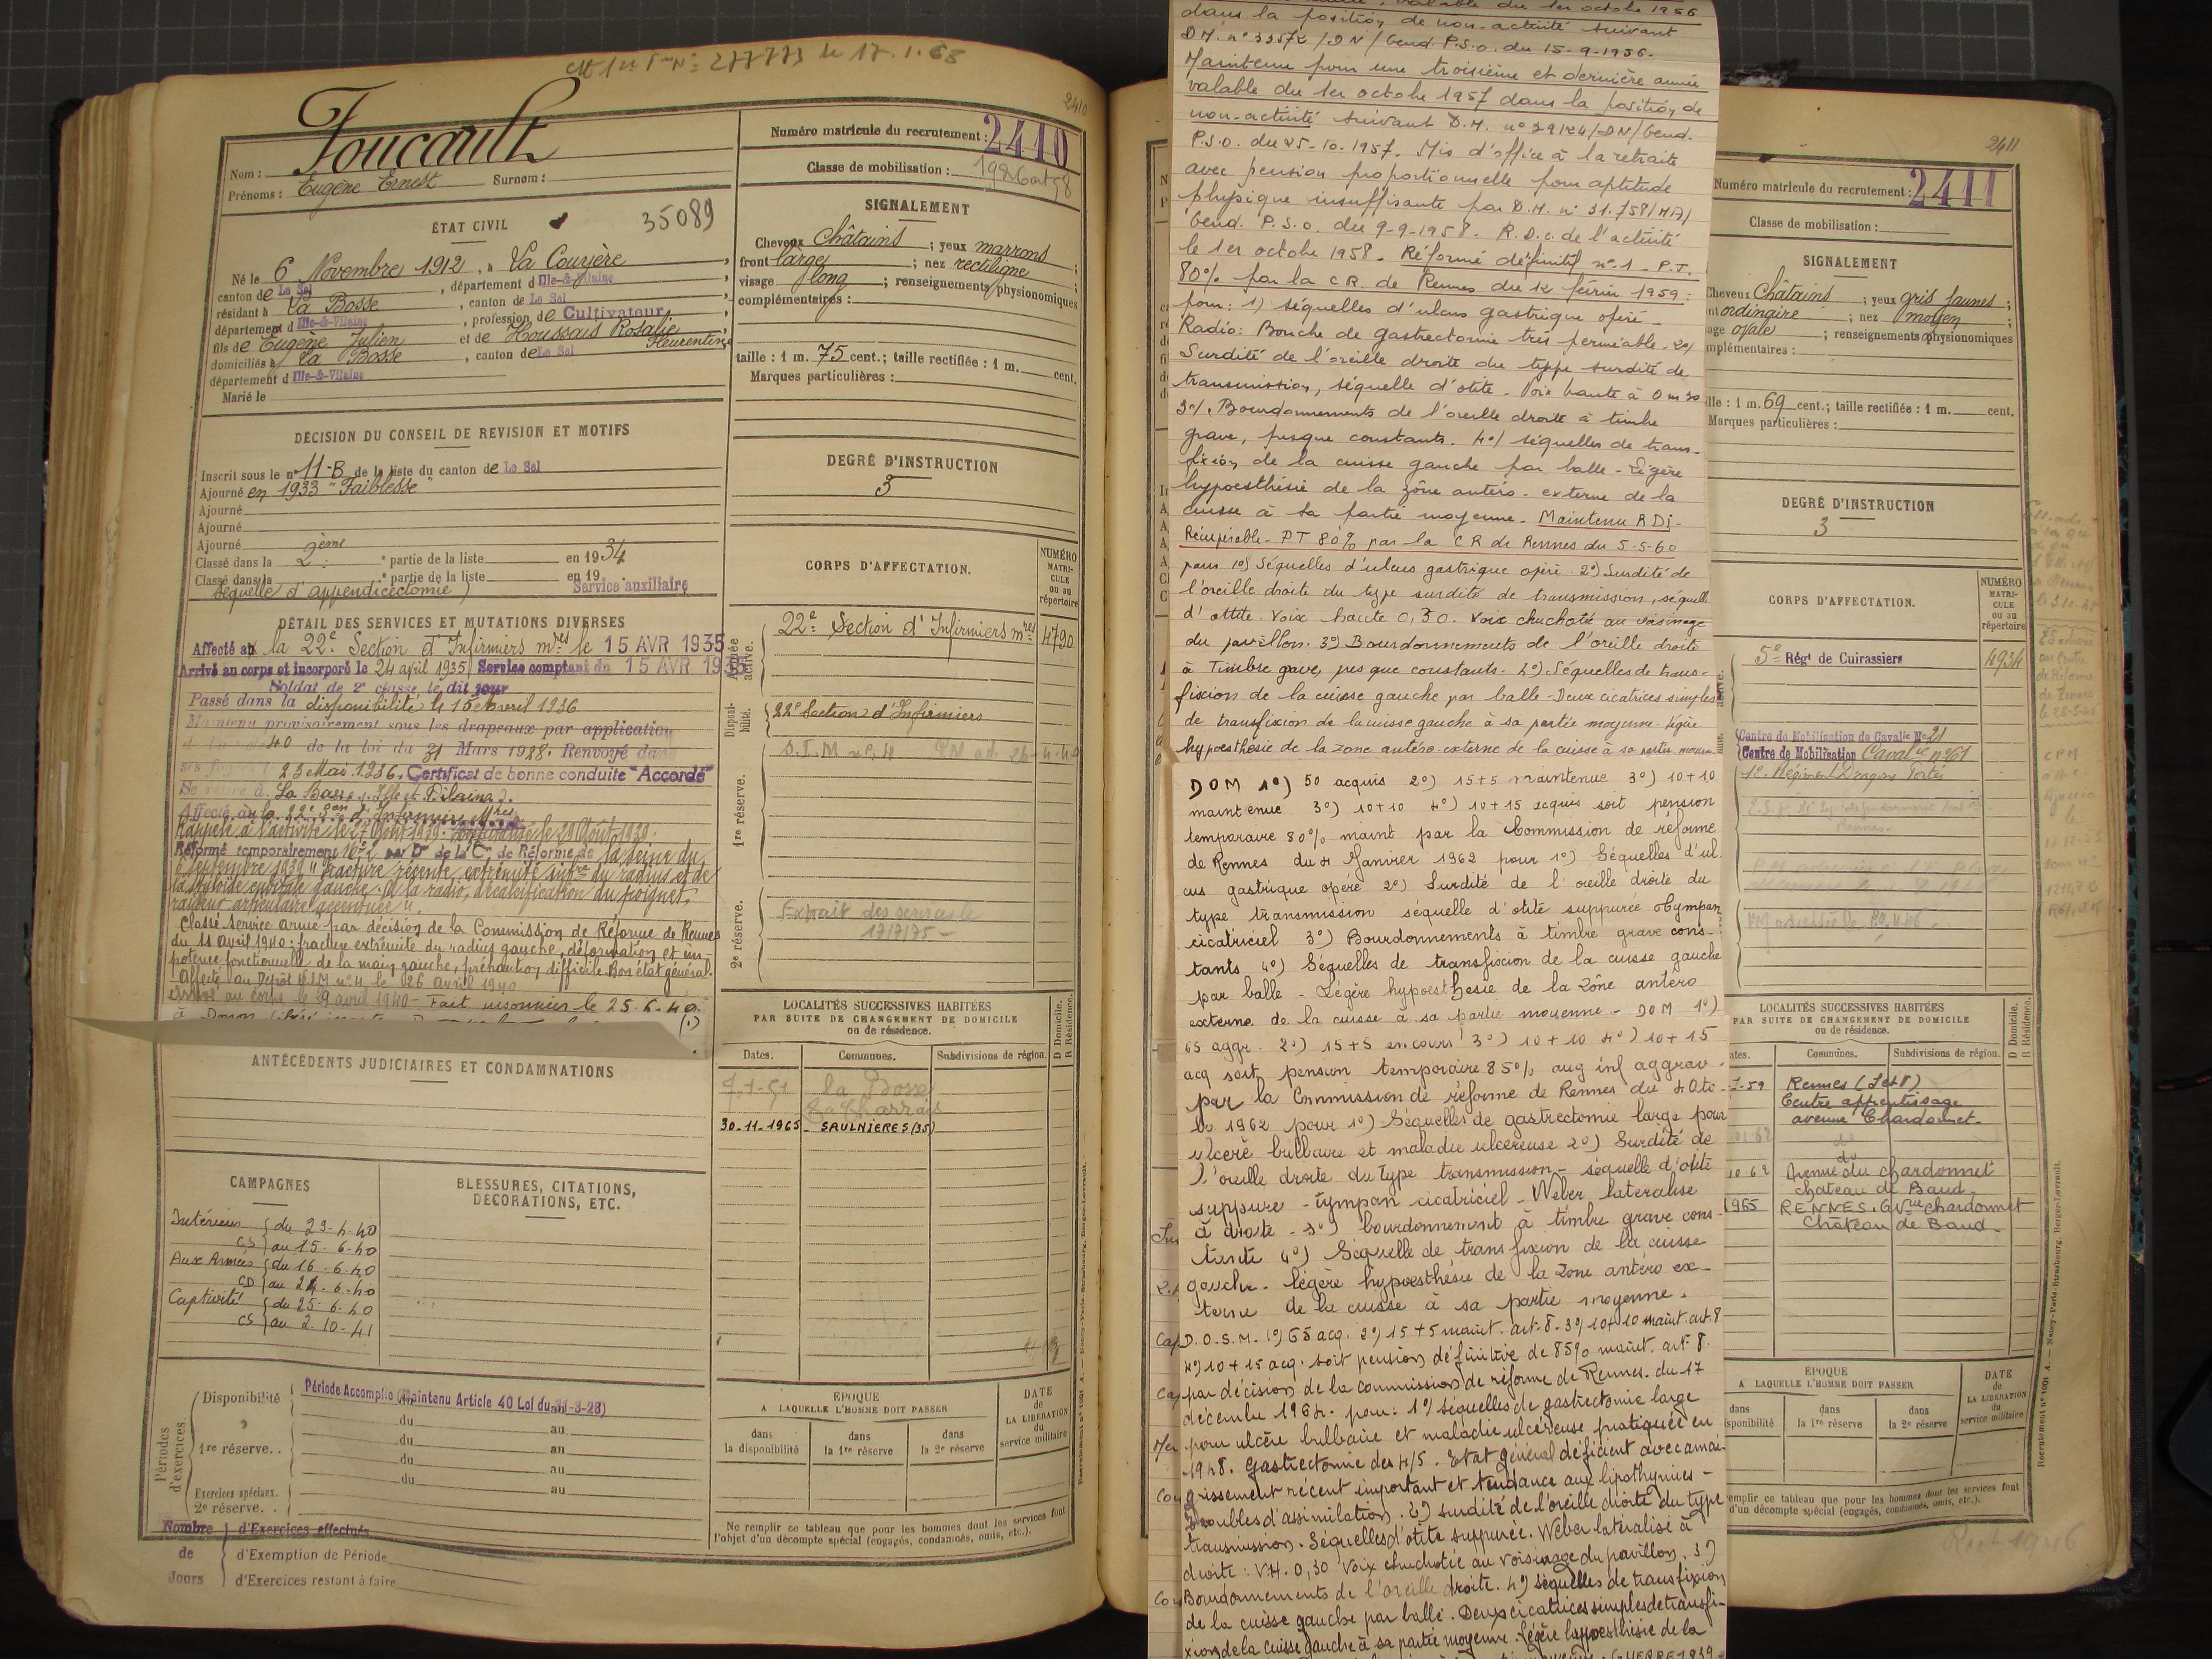 277773 le 17.1.68
2410
Foucault
Nom :
Prénoms : Eugène Ernest Surnom :
ÉTAT CIVIL
35089
Né le 6 Novembre 1912, à La Couyère
canton de Le Sel, département d Ille-&-Vilaine
résidant à La Bosse, canton de Le Sel
département d Ille-&-Vilaine, profession de Cultivateur
fils de Eugène Julien et de Houssais Rosalie Fleurentine
domiciliés à La Bosse, canton de Le Sel
département d Ille-&-Vilaine
Marié le
DÉCISION DU CONSEIL DE REVISION ET MOTIFS
Inscrit sous le n° 11-B de la liste du canton de Le Sel
Ajourné en 1933 "Faiblesse"
Ajourné
Ajourné
Ajourné
Classé dans la 2ème partie de la liste en 1934
Classé dans la e partie de la liste en 19 .
séquelle d'appendicectomie) Service auxiliaire
DÉTAIL DES SERVICES ET MUTATIONS DIVERSES
Affecté à la 22e Section d'Infirmiers mres le 15 AVR 1935
Arrivé au corps et incorporé le 24 avril 1935 Service comptant du 15 AVR 1935
Soldat de 2e classe le dit jour
Passé dans la disponibilité le 15 avril 1936
Maintenu provisoirement sous les drapeaux par application
40 de la loi du 31 Mars 1928. Renvoyé dans
ses foyers le 23 Mai 1936. Certificat de bonne conduite "Accordé"
Se retire à La Bosse, (Ille et Vilaine).
Affecté à la 22e Son d'Infirmiers Mres
Rappelé à l'activité le 27 Août 1939. le 29 Août 1939.
Réformé temporairement par Don de la Con de Réforme de la Seine du
6 Septembre 1939 "Fracture récente extrémité infre du radius et de
la styloïde cubitale gauche. A la radio, décalcification du poignet,
raideur articulaire accentuée".
Classé Service armé par décision de la Commission de Réforme de Rennes
du 11 avril 1940 : fracture extrémité du radius gauche, déformation et im-
potence fonctionnelle de la main gauche, préhension difficile. Bon état général.
Affecté au Dépôt n° 4 le 26 avril 1940
Arrivé au corps le 29 avril 1940 - Fait prisonnier le 25-6-40
(1)
ANTÉCÉDENTS JUDICIAIRES ET CONDAMNATIONS
CAMPAGNES
Intérieur du 29-4-40
CS au 15-6-40
Aux Armées du 16-6-40
CD au 24-6-40
Captivité du 25-6-40
CS au 2-10-41
BLESSURES, CITATIONS,
DÉCORATIONS, ETC.
Périodes d'exercices.
Disponibilité
Période Accomplie (Maintenu Article 40 Loi du 31-3-28)
du au
1re réserve. .
du au
du au
Exercices spéciaux.
2e réserve. .
du au
Nombre de Jours
d'Exercices effectués
d'Exemption de Période
d'Exercices restant à faire
Numéro matricule du recrutement : 2410
Classe de mobilisation : 1926
SIGNALEMENT
Cheveux Châtains ; yeux marrons ;
front large ; nez rectiligne ;
visage long ; renseignements physionomiques
complémentaires :
taille : 1 m. 75 cent.; taille rectifiée : 1 m. cent.
Marques particulières :
DEGRÉ D'INSTRUCTION
3
CORPS D'AFFECTATION.
NUMÉRO MATRICULE ou au répertoire
Armée active.
22e Section d'Infirmiers mres 4790
Disponibilité.
22e Section d'Infirmiers
1re réserve.
n° 4
2e réserve.
Extrait des services le
17/7/75
LOCALITÉS SUCCESSIVES HABITÉES
PAR SUITE DE CHANGEMENT DE DOMICILE
ou de résidence.
D Domicile. R Résidence.
Dates. Communes. Subdivisions de région.
la Bosse
30-11-1965 SAULNIERES (35)
ÉPOQUE
A LAQUELLE L'HOMME DOIT PASSER
DATE de LA LIBÉRATION du service militaire
dans la disponibilité
dans la 1re réserve
dans la 2e réserve
Ne remplir ce tableau que pour les hommes dont les services font
l'objet d'un décompte spécial (engagés, condamnés, omis, etc.).
valable du 1er octobre 1956
dans la position de non-activité suivant
D.M. n° 33572/DN/Gend. P.S.O. du 15-9-1956.
Maintenu pour une troisième et dernière année
valable du 1er octobre 1957 dans la position de
non-activité suivant D.M. n° 29124/DN/Gend.
P.S.O. du 25-10-1957. Mis d'office à la retraite
avec pension proportionnelle pour aptitude
physique insuffisante par D.M. n° 31.758/MA/
Gend. P.S.O. du 9-9-1958. R.D.C. de l'activité
le 1er octobre 1958. Réformé définitif n° 1 - P.T.
80% par la CR. de Rennes du 12 février 1959 :
pour : 1) séquelles d'ulcus gastrique opéré -
Radio : Bouche de gastrectomie très perméable - 2°/
Surdité de l'oreille droite du type surdité de
transmission, séquelle d'otite. Voix haute à 0 m 30
3°/. Bourdonnements de l'oreille droite à timbre
grave, presque constants. 4°/ séquelles de trans-
fixion de la cuisse gauche par balle - Légère
hypoesthésie de la zône antéro-externe de la
cuisse à sa partie moyenne. Maintenu R Di-
Récupérable - PT 80% par la CR de Rennes du 5-5-60
pour 1°) Séquelles d'ulcus gastrique opéré. 2°) Surdité de
l'oreille droite du type surdité de transmission, séquelle
d'otite. Voix haute 0,30. Voix chuchotée au voisinage
du pavillon. 3°) Bourdonnements de l'oreille droite
à timbre gave, presque constants. 4°) Séquelles de trans-
fixion de la cuisse gauche par balle - Deux cicatrices simples
de transfixion de la cuisse gauche à sa partie moyenne. légère
hypoesthésie de la zone antéro-externe de la cuisse à sa partie moyenne
DOM 1°) 50 acquis 2°) 15+5 maintenue 3°) 10+10
maintenue 3°) 10+10 4°) 10+15 acquis soit pension
temporaire 80% maint par la Commission de réforme
de Rennes du 4 Janvier 1962 pour 1°) Séquelles d'ul
cus gastrique opéré 2°) Surdité de l'oreille droite du
type transmission séquelle d'otite suppurée tympan
cicatriciel 3°) Bourdonnements à timbre grave cons-
tants 4°) Séquelles de transfixion de la cuisse gauche
par balle - Légère hypoesthesie de la Zône antéro
externe de la cuisse à sa partie moyenne - DOM 1°)
65 aggr. 2°) 15+5 en cours 3°) 10+10 4°) 10+15
acq soit pension temporaire 85% aug inf aggrav.
par la Commission de réforme de Rennes du 4 Octo-
bre 1962 pour 1°) Séquelles de gastrectomie large pour
ulcère bulbaire et maladie ulcéreuse 2°) Surdité de
l'oreille droite du type transmission - séquelle d'otite
suppure - tympan cicatriciel - Weber latéralisé
à droite - 3°) bourdonnement à timbre grave cons-
tante 4°) Séquelle de transfixion de la cuisse
gauche - légère hypoesthésie de la Zone antéro ex-
terne de la cuisse à sa partie moyenne.
D.O.S.M. 1°) 65 acq. 2°) 15+5 maint. art. 8 - 3°) 10+10 maint. art. 8
4°) 10+15 acq. soit pension définitive de 85% maint. art. 8.
par décision de la commission de réforme de Rennes du 17
décembre 1964. pour : 1°) séquelles de gastrectomie large
pour ulcère bulbaire et maladie ulcéreuse pratiquée en
1948. Gastrectomie des 4/5. Etat général déficient avec amai-
grissement récent important et tendance aux lipothymies -
Troubles d'assimilation. 2°) surdité de l'oreille droite du type
transmission. Séquelles d'otite suppurée. Weber latéralisé à
droite : V.H. 0,30 Voix chuchotée au voisinage du pavillon. 3°)
Bourdonnements de l'oreille droite. 4°) séquelles de transfixion
de la cuisse gauche par balle. Deux cicatrices simples de transfi-
xion de la cuisse gauche à sa partie moyenne. Légère hypoesthésie de la
2411
Numéro matricule du recrutement : 2411
Classe de mobilisation :
SIGNALEMENT
Cheveux Châtains ; yeux gris jaunes ;
nt ordinaire ; nez moyen ;
age ovale ; renseignements physionomiques
mplémentaires :
lle : 1 m. 69 cent.; taille rectifiée : 1 m. cent.
Marques particulières :
DEGRÉ D'INSTRUCTION
3
CORPS D'AFFECTATION.
NUMÉRO MATRICULE ou au répertoire
5e Régt de Cuirassiers 4934
Centre de Mobilisation de Cavalie N° 21
Centre de Mobilisation Cavalie n° 61
1er Régiment Dragons Portés
LOCALITÉS SUCCESSIVES HABITÉES
PAR SUITE DE CHANGEMENT DE DOMICILE
ou de résidence.
D Domicile. R Résidence.
ates. Communes. Subdivisions de région.
-59 Rennes (I et V)
Centre apprentissage
avenue Chardonnet
do
10-62 Avenue du chardonnet
chateau de Baud
1965 RENNES. 6 Vue Chardonnet
Château de Baud
ÉPOQUE
A LAQUELLE L'HOMME DOIT PASSER
DATE de LA LIBÉRATION du service militaire
dans sponibilité
dans la 1re réserve
dans la 2e réserve
emplir ce tableau que pour les hommes dont les services font
d'un décompte spécial (engagés, condamnés, omis, etc.).